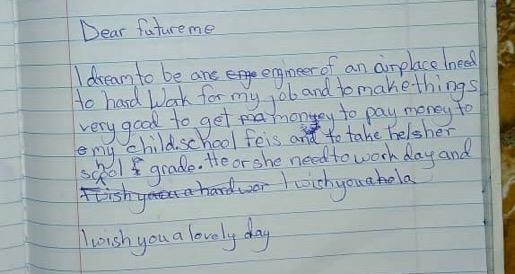 Dear future me
I dream to be ans engineer of an airplace I need
to hard work for my job and to make things
very good to get money to pay money to
my child.school feis and to take helsher
school & grade. He or she need to work day and
I wish you a hard wor I wich you a hela
I wish you a lovely day